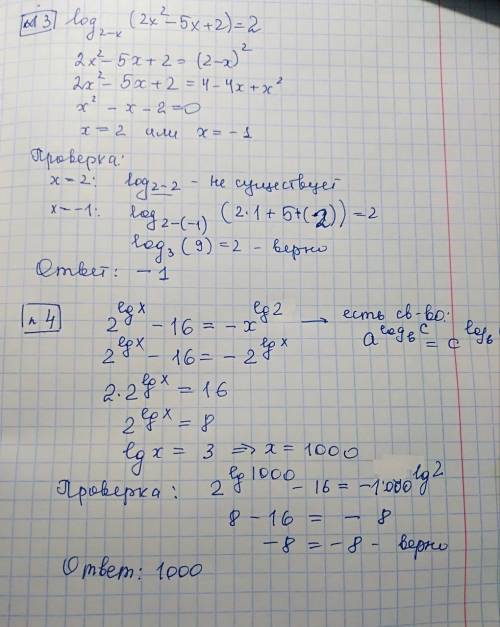 №3 log₂₋ₓ (2x² - 5x + 2) = 2
2x² - 5x + 2 = (2-x)²
2x² - 5x + 2 = 4 - 4x + x²
x² - x - 2 = 0
x = 2 или x = -1
Проверка:
x = 2: log₂₋₂ - не существует
x = -1: log₂₋₍₋₁₎ (2·1 + 5 + (2)) = 2
log₃ (9) = 2 - верно
Ответ: -1
№4 2^(lg x) - 16 = -x^(lg 2) → есть св-во:
2^(lg x) - 16 = -2^(lg x) a^(log_b c) = c^(log_b
2·2^(lg x) = 16
2^(lg x) = 8
lg x = 3 ⇒ x = 1000
Проверка: 2^(lg 1000) - 16 = -1000^(lg 2)
8 - 16 = - 8
-8 = -8 - верно
Ответ: 1000